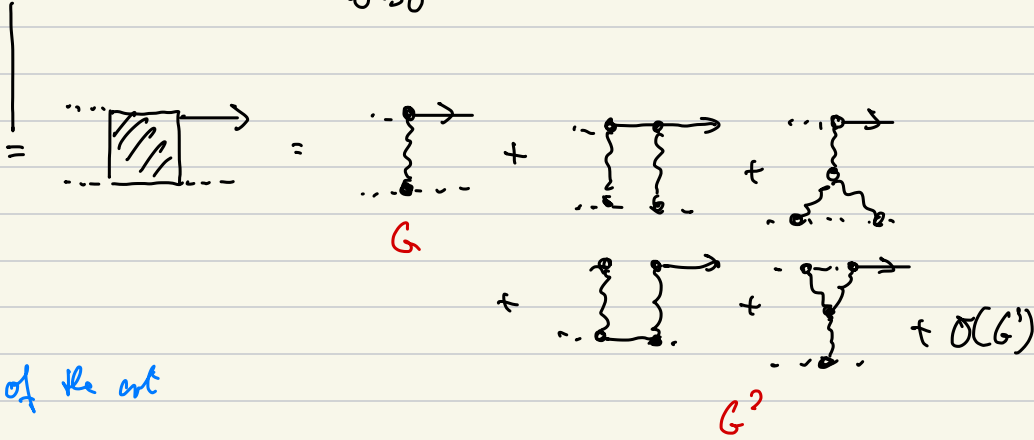 = = + +
G
+ + + O(G³)
of the art
G²